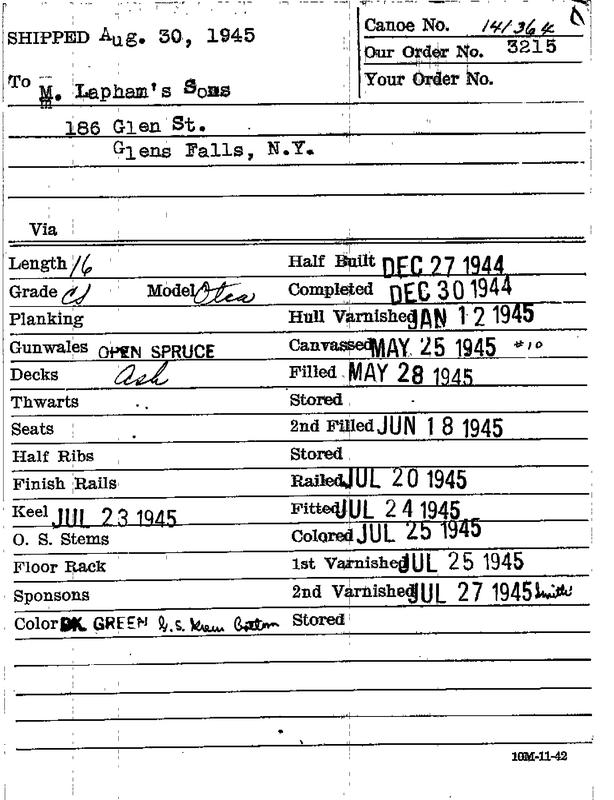 SHIPPED Aug. 30, 1945
Canoe No. 141364
Our Order No. 3215
To M. Lapham's Sons
Your Order No.
186 Glen St.
Glens Falls, N.Y.
Via
Length 16 Half Built DEC 27 1944
Grade CS Model Otca Completed DEC 30 1944
Planking Hull Varnished JAN 12 1945
Gunwales OPEN SPRUCE Canvassed MAY 25 1945 #10
Decks Ash Filled MAY 28 1945
Thwarts Stored
Seats 2nd Filled JUN 18 1945
Half Ribs Stored
Finish Rails Railed JUL 20 1945
Keel JUL 23 1945 Fitted JUL 24 1945
O. S. Stems Colored JUL 25 1945
Floor Rack 1st Varnished JUL 25 1945
Sponsons 2nd Varnished JUL 27 1945 Smith
Color DK GREEN Bottom Stored
10M-11-42